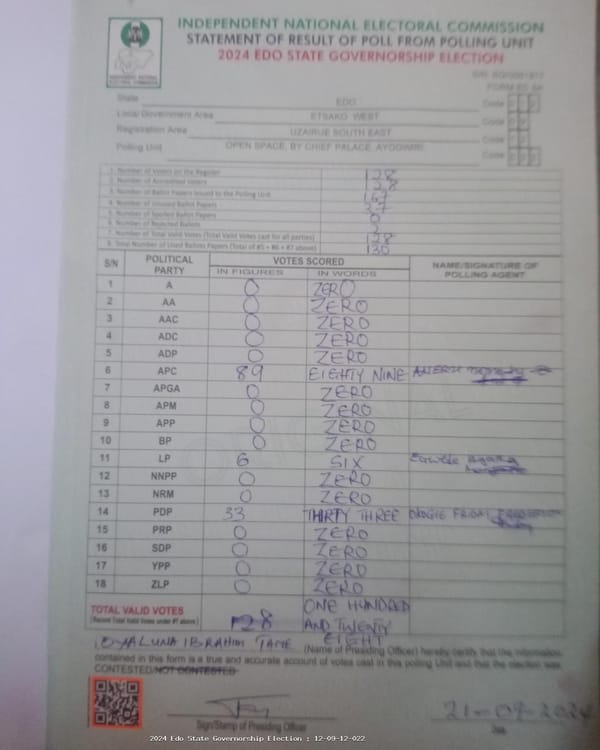 INDEPENDENT NATIONAL ELECTORAL COMMISSION
STATEMENT OF RESULT OF POLL FROM POLLING UNIT
2024 EDO STATE GOVERNORSHIP ELECTION
FORM EC 8A
State EDO Code
Local Government Area ETSAKO WEST Code
Registration Area UZAIRUE SOUTH EAST Code
Polling Unit OPEN SPACE, BY CHIEF PALACE, AYOGWIRI Code
1. Number of Voters on the Register 128
2. Number of Accredited Voters 128
3. Number of Ballot Papers Issued to the Polling Unit 167
4. Number of Unused Ballot Papers 37
5. Number of Spoiled Ballot Papers 0
6. Number of Rejected Ballots 2
7. Number of Total Valid Votes (Total Valid Votes cast for all parties) 128
8. Total Number of Used Ballots Papers (Total of #5 + #6 + #7 above) 130
S/N POLITICAL PARTY VOTES SCORED NAME/SIGNATURE OF POLLING AGENT
IN FIGURES IN WORDS
1 A 0 ZERO
2 AA 0 ZERO
3 AAC 0 ZERO
4 ADC 0 ZERO
5 ADP 0 ZERO
6 APC 89 EIGHTY NINE
7 APGA 0 ZERO
8 APM 0 ZERO
9 APP 0 ZERO
10 BP 0 ZERO
11 LP 6 SIX
12 NNPP 0 ZERO
13 NRM 0 ZERO
14 PDP 33 THIRTY THREE
15 PRP 0 ZERO
16 SDP 0 ZERO
17 YPP 0 ZERO
18 ZLP 0 ZERO
TOTAL VALID VOTES 128 ONE HUNDRED
(Record Total Valid Votes under #7 above) AND TWENTY
EIGHT
IBRAHIM (Name of Presiding Officer) hereby certify that the information
contained in this form is a true and accurate account of votes cast in this polling Unit and that the election was
CONTESTED/NOT CONTESTED
21-09-2024
Sign/Stamp of Presiding Officer Date
2024 Edo State Governorship Election : 12-09-12-022